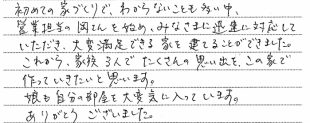 初めての家づくりで、わからないことも多い中、
営業担当の岡さんを始め、みなさまに迅速に対応して
いただき、大変満足できる家を建てることができました。
これから、家族3人でたくさんの思い出を、この家で
作っていきたいと思います。
娘も自分の部屋を大変気に入っています。
ありがとうございました。